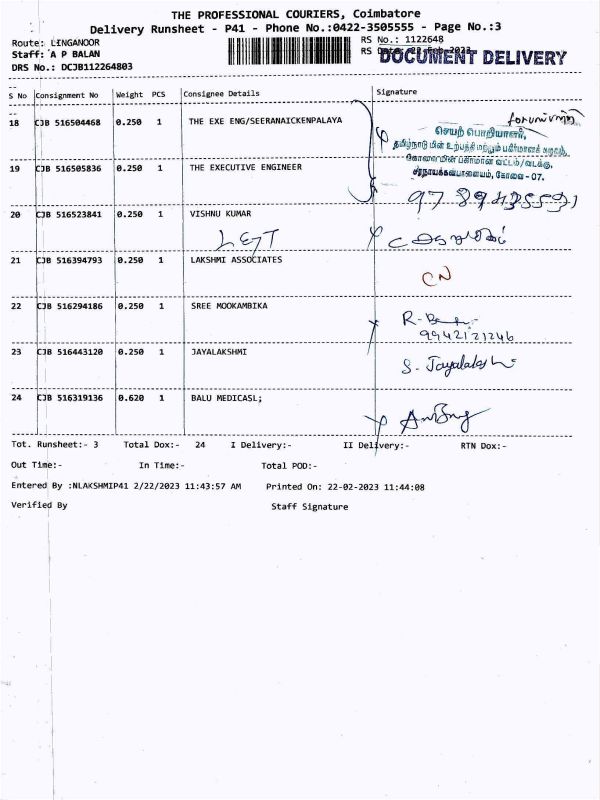 THE PROFESSIONAL COURIERS, Coimbatore
Delivery Runsheet - P41 - Phone No.:0422-3505555 - Page No.:3
Route: LINGANOOR
RS No.: 1122648
Staff: A P BALAN
RS Date: 22-Feb-2023
DOCUMENT DELIVERY
DRS No.: DCJB112264803
S No Consignment No Weight PCS Consignee Details Signature
18 CJB 516504468 0.250 1 THE EXE ENG/SEERANAICKENPALAYA
செயற் பொறியாளர்,
தமிழ்நாடு மின் உற்பத்தி மற்றும் பகிர்மானக் கழகம்,
கோவை மின் பகிர்மான வட்டம்/வடக்கு,
19 CJB 516505836 0.250 1 THE EXECUTIVE ENGINEER
சீரநாயக்கன்பாளையம், கோவை - 07.
20 CJB 516523841 0.250 1 VISHNU KUMAR
21 CJB 516394793 0.250 1 LAKSHMI ASSOCIATES
CN
22 CJB 516294186 0.250 1 SREE MOOKAMBIKA
23 CJB 516443120 0.250 1 JAYALAKSHMI
S. Jayalakshmi
24 CJB 516319136 0.620 1 BALU MEDICASL;
Tot. Runsheet:- 3 Total Dox:- 24 I Delivery:- II Delivery:- RTN Dox:-
Out Time:- In Time:- Total POD:-
Entered By :NLAKSHMIP41 2/22/2023 11:43:57 AM Printed On: 22-02-2023 11:44:08
Verified By Staff Signature